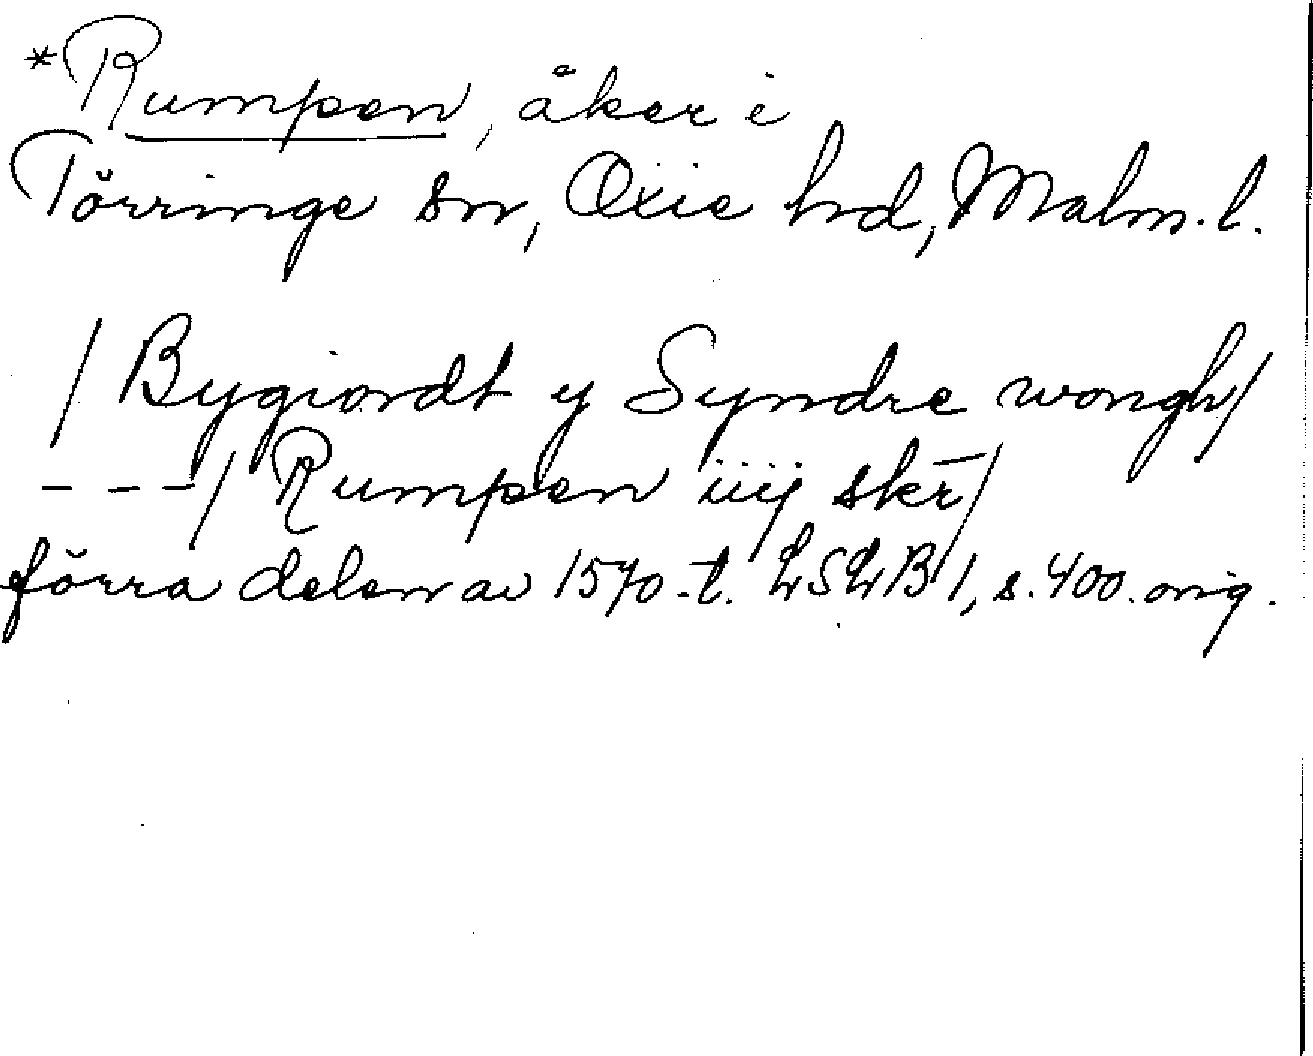 *Rumpen, åker i
Törringe sn, Oxie hd, Malm. l.
/ Bygiordt y Syndre wongh/
---/ Rumpen iiij skr̄/
förra delen av 1570-t. LSLB 1, s. 400. orig.